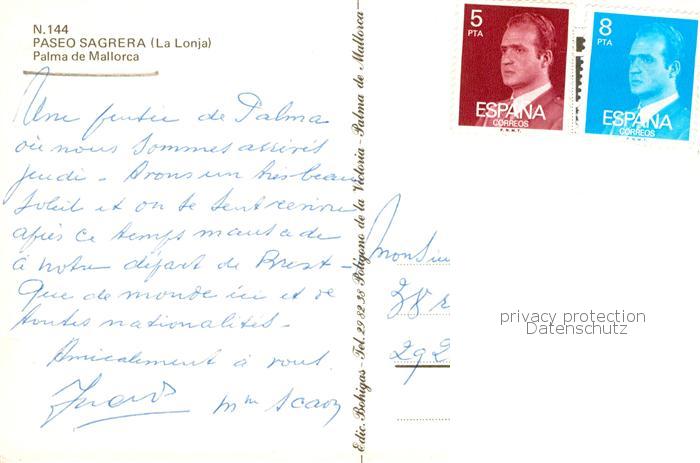 N.144
PASEO SAGRERA (La Lonja)
Palma de Mallorca
Une de Palma
où nous sommes arrivés
jeudi - Avons un très beau
soleil et on se sent revivre
après ce temps maussade
à notre départ de Brest -
Que de monde ici et de
toutes nationalités -
Amicalement à vous.
Mme
Edic. Bohigas - Tel. 29 82 38 Poligono de la Victoria - Palma de Mallorca -
5
PTA
ESPAÑA
CORREOS
F.N.M.T.
8
PTA
ESPAÑA
CORREOS
F.N.M.T.
Monsieu
38 r
292
privacy protection
Datenschutz